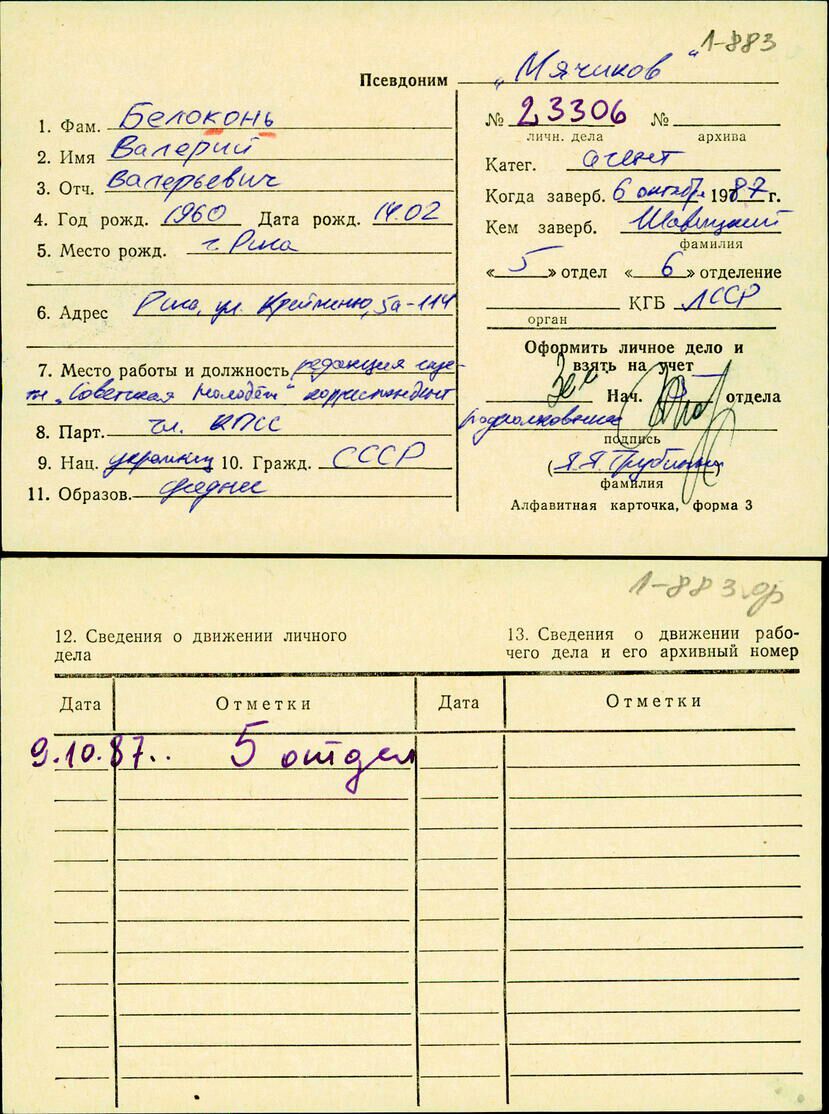 1-883
Псевдоним „Мячиков"
1. Фам. Белоконь
2. Имя Валерий
3. Отч. Валерьевич
4. Год рожд. 1960 Дата рожд. 14.02
5. Место рожд. г. Рига
6. Адрес Рига, ул. 5а-114
7. Место работы и должность редакция газе-
ты „Советская молодёжь" корреспондент
8. Парт. чл. КПСС
9. Нац. украинец 10. Гражд. СССР
11. Образов. среднее
№ 23306 №
личн. дела архива
Катег. агент
Когда заверб. 6 октября 1987 г.
Кем заверб.
фамилия
«5» отдел «6» отделение
КГБ ЛССР
орган
Оформить личное дело и
взять на учет
Зам. Нач. 5 отдела
подполковник
подпись
(Я.Я.)
фамилия
Алфавитная карточка, форма 3
1-883 др
12. Сведения о движении личного
дела
13. Сведения о движении рабо-
чего дела и его архивный номер
Дата Отметки Дата Отметки
9.10.87.. 5 отдел